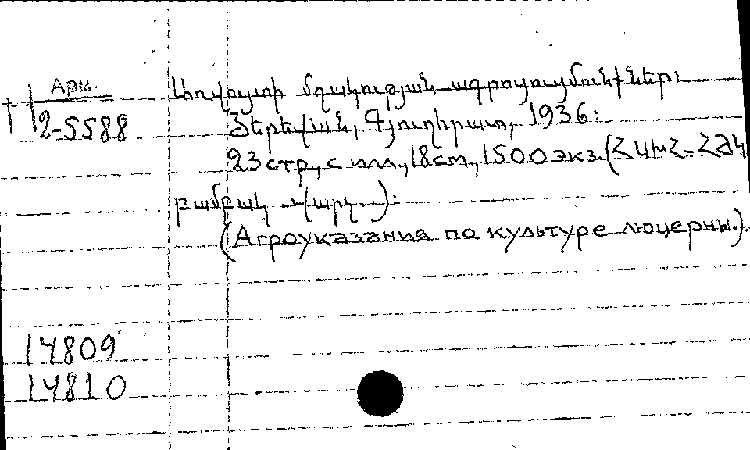 Арм.
2-5588
Առվույտի մշակության ագրոցուցմունքներ։
Յերեվան, Գյուղհրատ, 1936։
23 стр., с илл., 18 см., 1500 экз. (ՀԱԽՀ-ՀԺԿ
բամբակ
(Агроуказания по культуре люцерны.).
14809
14810